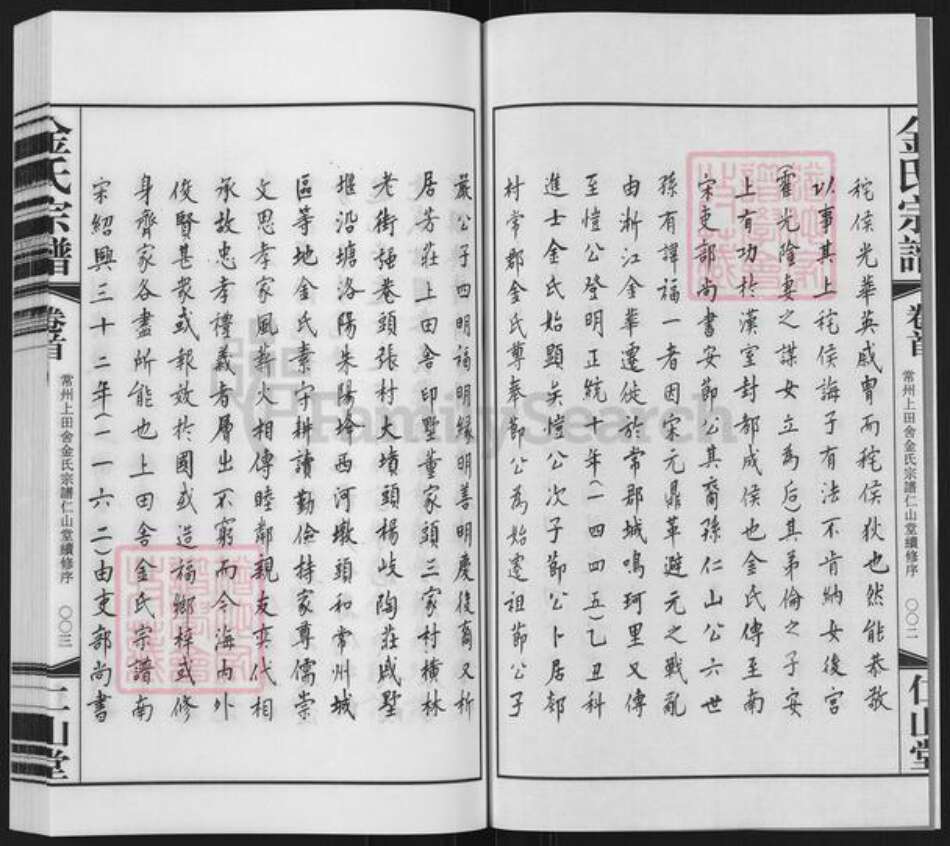 金氏宗譜
卷首
常州上田舍金氏宗譜仁山堂續修序
〇〇二
仁山堂
秺侯光華英威胄而秺侯狄也然能恭敬
以事其上秺侯誨子有法不肯納女後宮
霍光陰妻之謀女立為后其弟倫之子安
上有功於漢室封都成侯也金氏傳至南
宋吏部尚書安節公其裔孫仁山公六世
孫有諱福一者因宋元鼎革避元之戰亂
由浙江金華遷徙於常郡城鳴珂里又傳
至愷公登明正統十年(一四四五)乙丑科
進士金氏始顯矣愷公次子節公卜居鄒
村常郡金氏尊奉節公為始遷祖節公子
嚴公子四明福明緣明善明慶後裔又析
居芳莊上田舍印墅董家頭三家村橫林
老街強巷頭張村大墳頭楊岐陶莊戚墅
堰沿塘洛陽朱陽坮西河墩頭和常州城
區等地金氏素守耕讀勤儉持家尊儒崇
文思孝家風薪火相傳睦鄰親友奕代相
承故忠孝禮義者層出不窮而今海內外
俊賢甚衆或報效於國或造福鄉梓或修
身齊家各盡所能也上田舍金氏宗譜南
宋紹興三十二年(一一六二)由吏部尚書
金氏宗譜
卷首
常州上田舍金氏宗譜仁山堂續修序
〇〇三
仁山堂
FamilySearch